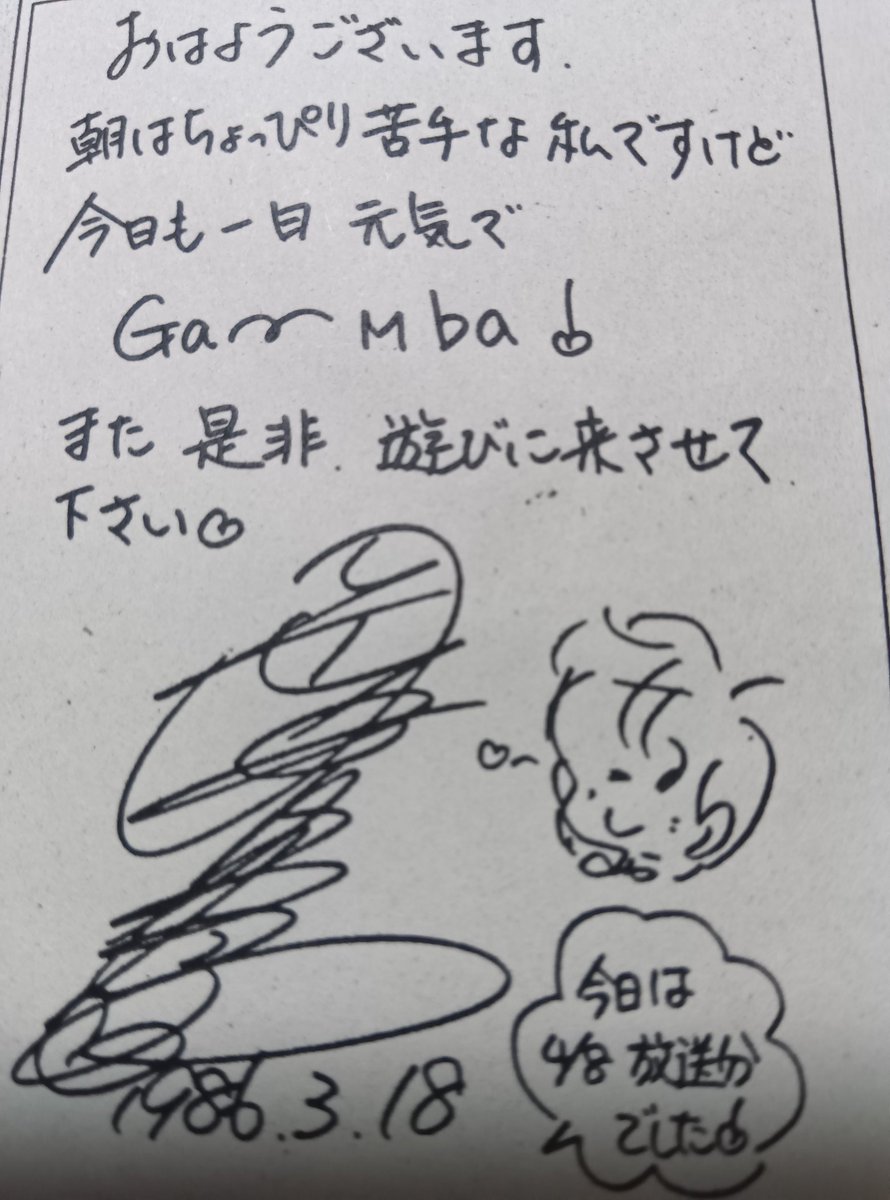 おはようございます.
朝はちょっぴり苦手な私ですけど
今日も一日 元気で
Ga〜mba
また 是非. 遊びに来させて
下さい
1986.3.18
今日は
4/8 放送分
でした